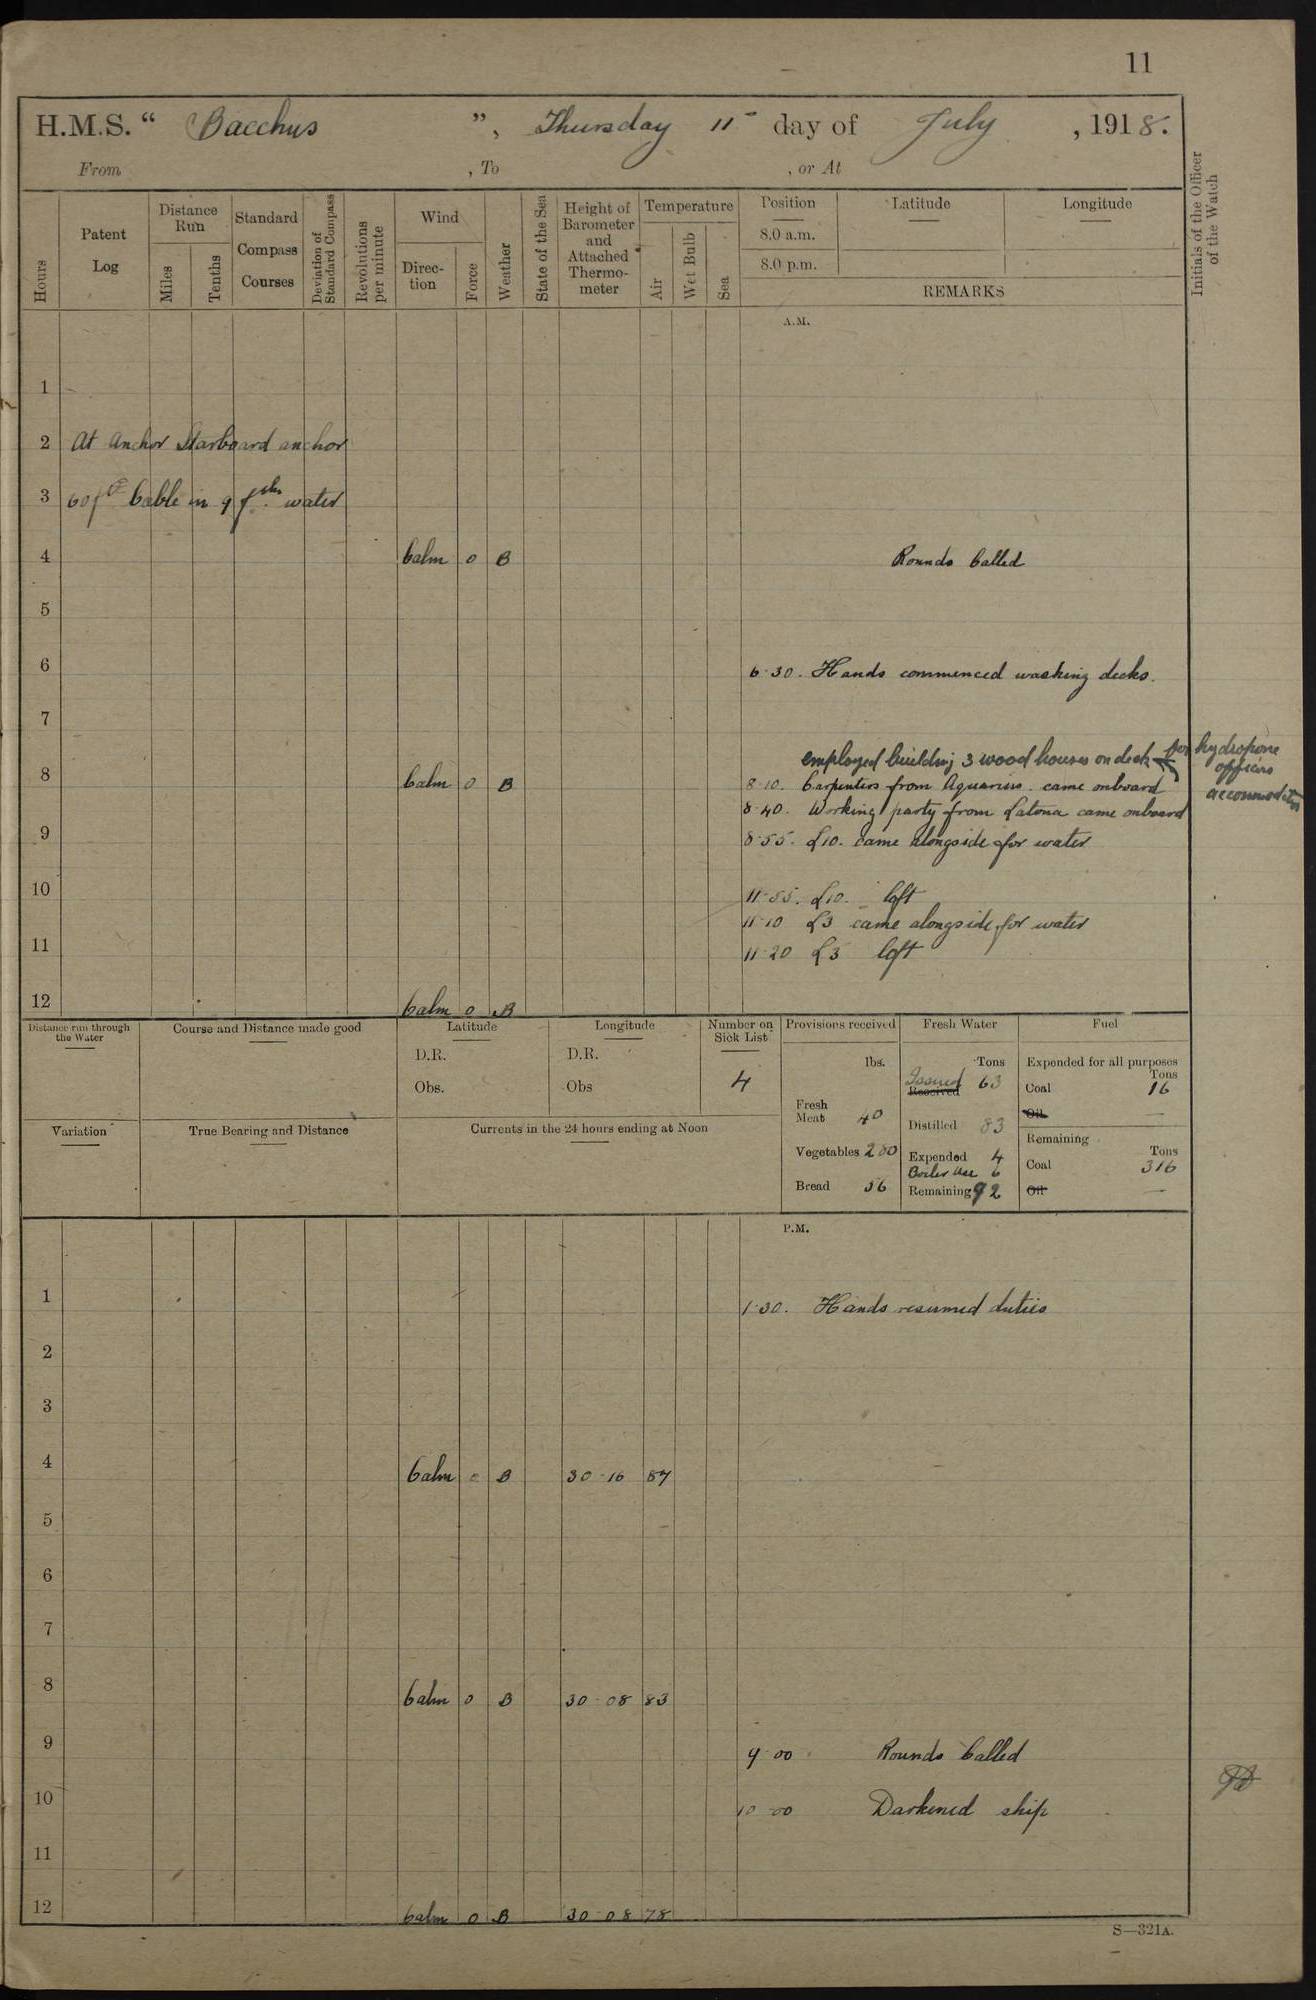 11
H.M.S. “ Bacchus ”, Thursday 11 day of July , 1918.
From , To , or At
Hours
Patent Log
Distance Run
Miles
Tenths
Standard Compass Courses
Deviation of Standard Compass
Revolutions per minute
Wind
Direc-tion
Force
Weather
State of the Sea
Height of Barometer and Attached Thermo-meter
Temperature
Air
Wet Bulb
Sea
Position
8.0 a.m.
8.0 p.m.
Latitude
Longitude
REMARKS
Initials of the Officer of the Watch
A.M.
1
2 At Anchor Starboard anchor
3 60 fth Cable in 9 fths water
4 Calm 0 B Rounds Called
5
6
6.30. Hands commenced washing decks.
7
employed building 3 wood houses on deck for hydropone officers accommodation
8 Calm 0 B
8.10. Carpenters from Aquarius came onboard
8.40. Working party from Latona came onboard
9
8.55. L10. came alongside for water
10
11.55. L10. left
11.10 L3 came alongside for water
11
11.20 L3 left
12 Calm 0 B
Distance run through the Water
Course and Distance made good
Latitude
D.R.
Obs.
Longitude
D.R.
Obs
Number on Sick List
4
Provisions received
lbs.
Fresh Meat 40
Vegetables 280
Bread 56
Fresh Water
Tons
Issued 63
Received
Distilled 83
Expended 4
Boiler Use 6
Remaining 92
Fuel
Expended for all purposes
Tons
Coal 16
Oil —
Remaining
Tons
Coal 316
Oil —
Variation
True Bearing and Distance
Currents in the 24 hours ending at Noon
P.M.
1
1.30. Hands resumed duties
2
3
4 Calm 0 B 30.16 87
5
6
7
8 Calm 0 B 30.08 83
9
9.00 Rounds Called
10
10.00 Darkened ship
11
12 Calm 0 B 30.08 78
S—321A.